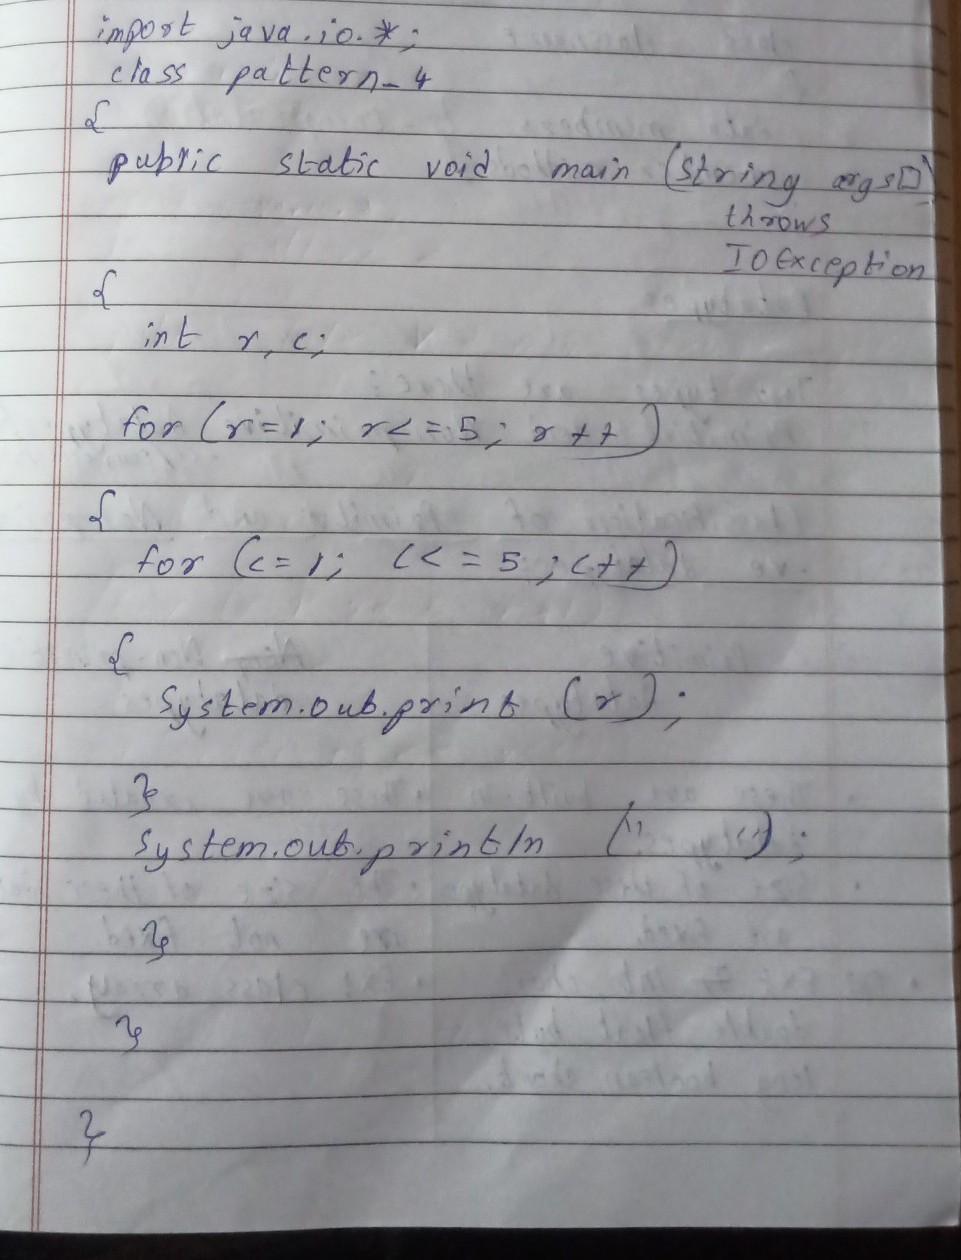 import java.io.*;
class pattern_4
{
public static void main (String args[])
throws
IOException
{
int r, c;
for (r=1; r<=5; r++)
{
for (c=1; c<=5; c++)
{
System.out.print (r);
}
System.out.println (" ");
}
}
}